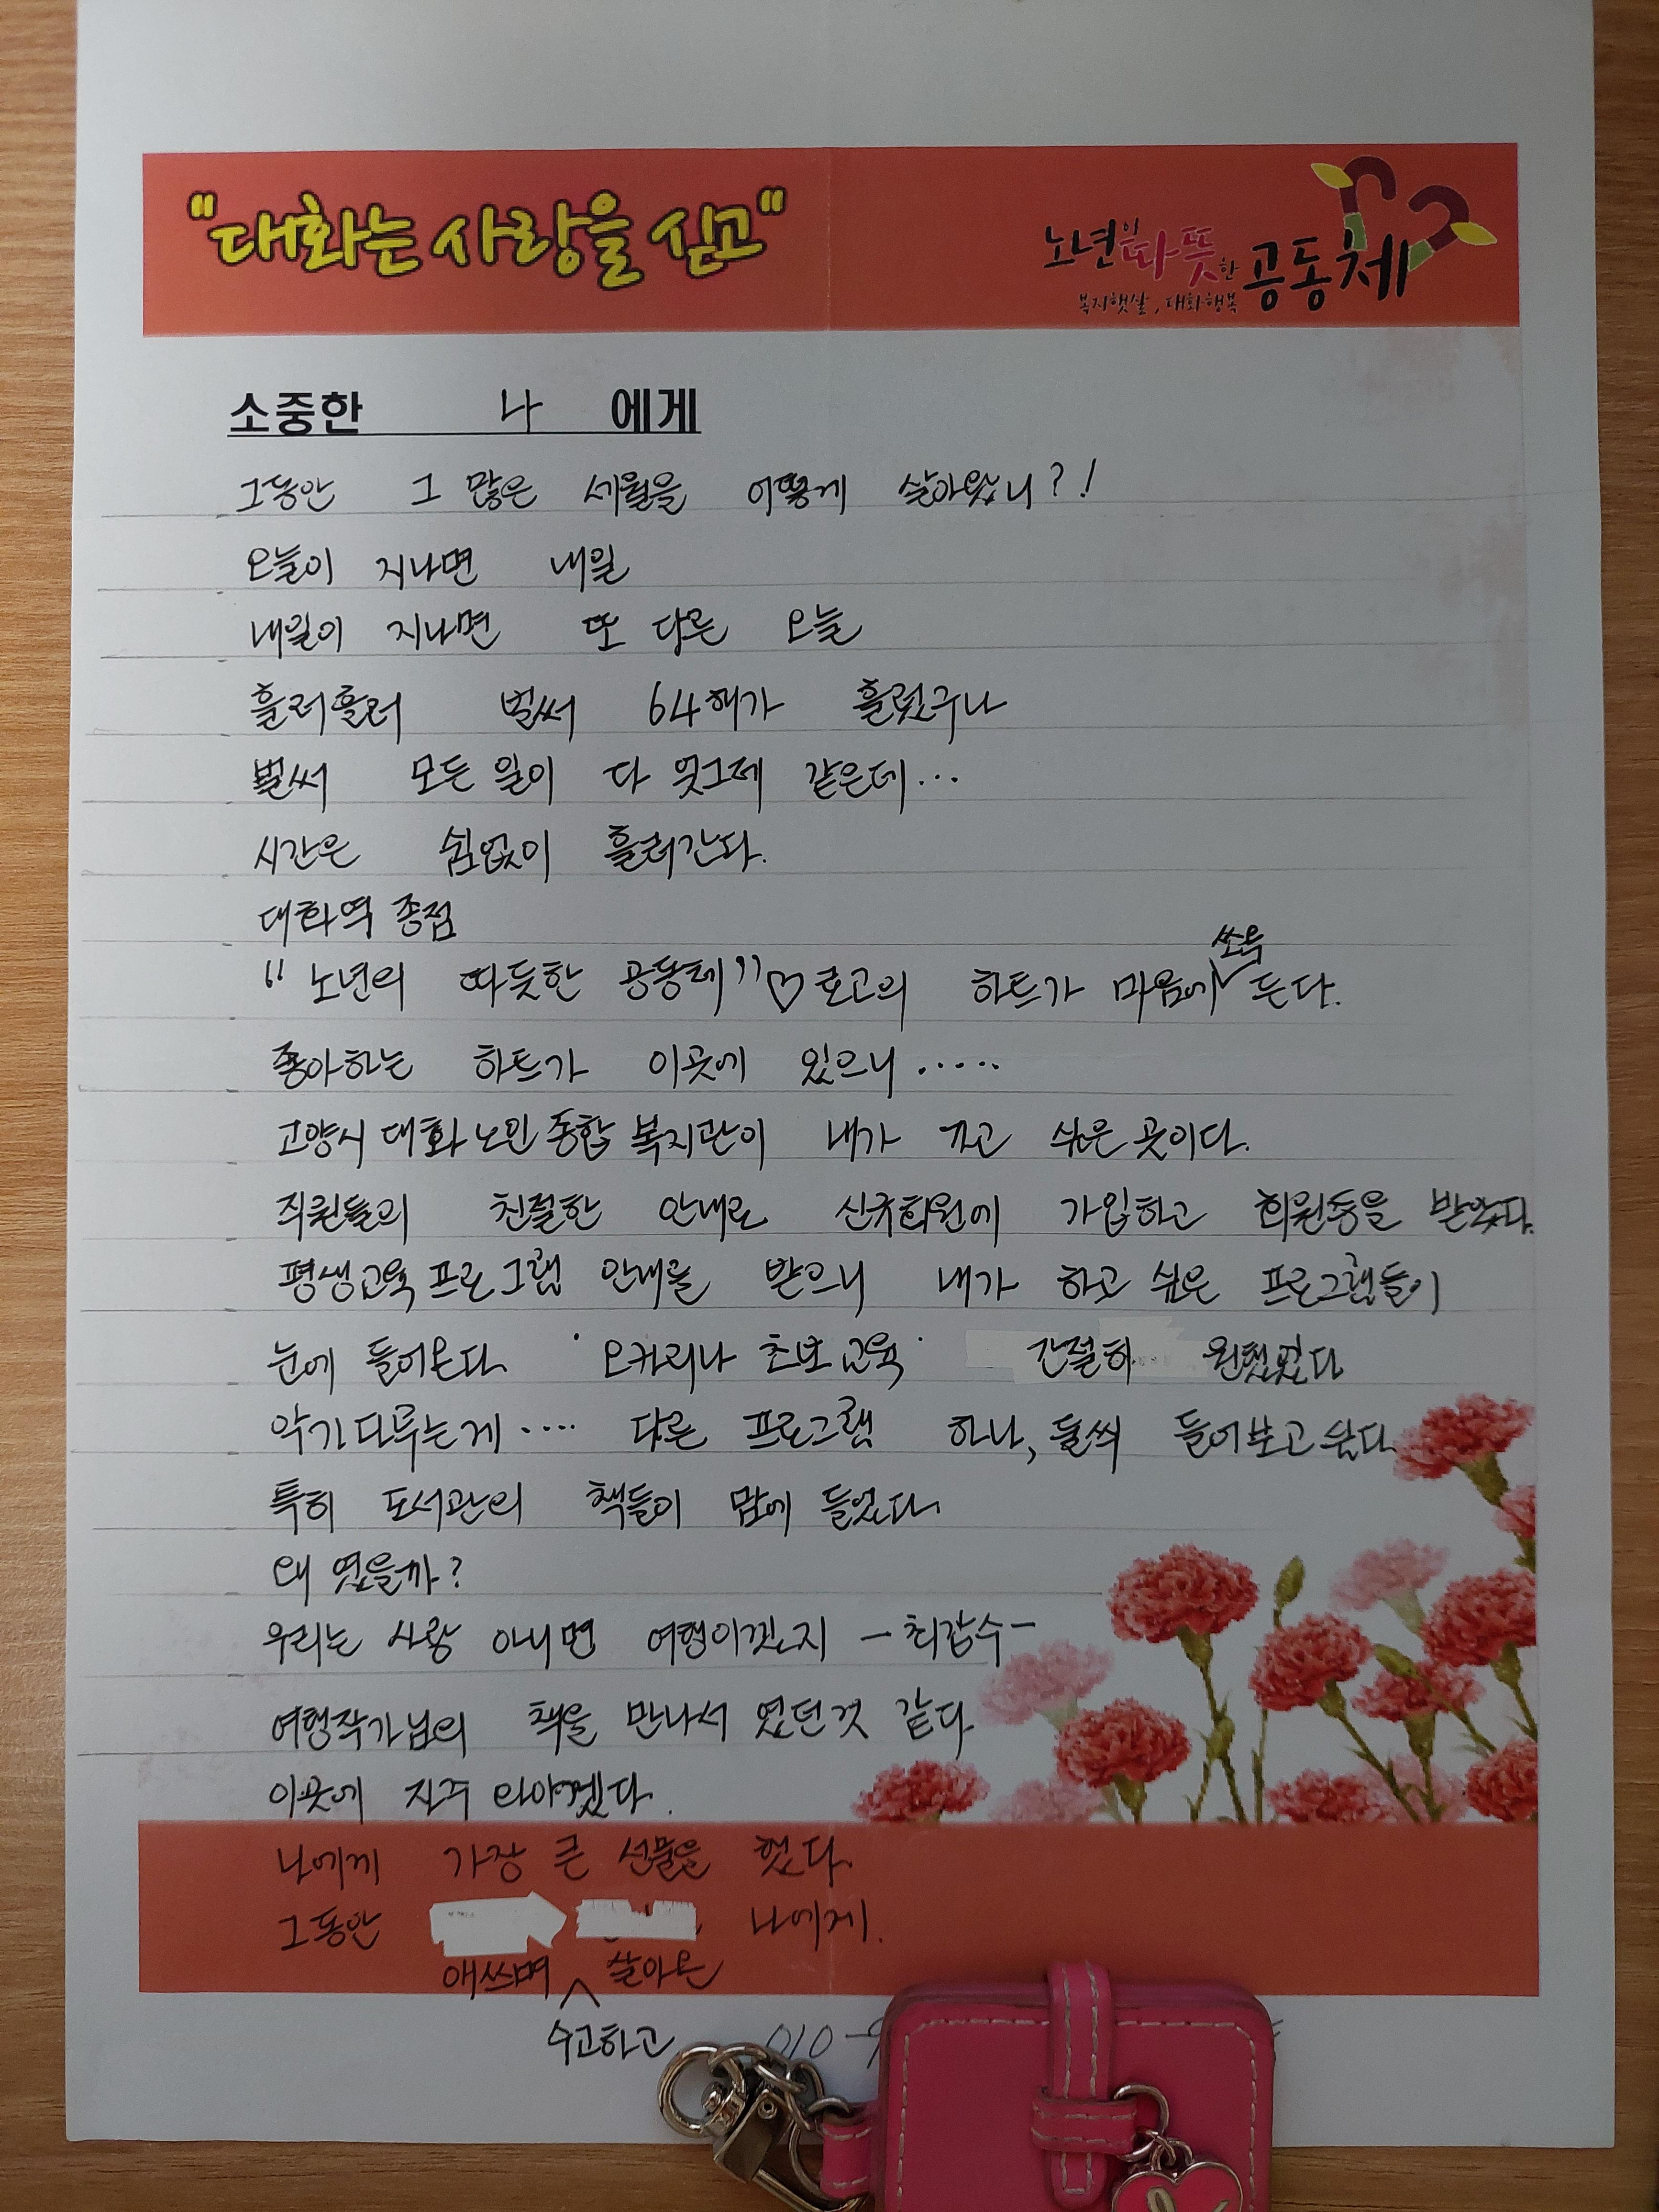 "대화는 사랑을 싣고"
노년이 따뜻한 공동체
복지햇살, 대화행복
소중한 나 에게
그동안 그 많은 세월을 어떻게 살아왔니?!
오늘이 지나면 내일
내일이 지나면 또 다른 오늘
흘러흘러 벌써 64해가 흘렀구나
벌써 모든 일이 다 엊그제 같은데...
시간은 쉼없이 흘러간다.
대화역 종점
"노년의 따듯한 공동체"♡로고의 하트가 마음에 쏘옥 든다.
좋아하는 하트가 이곳에 있으니.....
고양시 대화노인종합복지관이 내가 끄고 싶은 곳이다.
직원들의 친절한 안내로 신규회원에 가입하고 회원증을 받았다.
평생교육프로그램 안내를 받으니 내가 하고 싶은 프로그램들이
눈에 들어온다. '오카리나 초보교육' 간절히 원했었다
악기다루는게.... 다른 프로그램 하나, 둘씩 들어보고싶다.
특히 도서관의 책들이 맘에 들었다.
왜 였을까?
우리는 사랑 아니면 여행이겠지 -최갑수-
여행작가님의 책을 만나서 였던것 같다.
이곳에 자주 와야겠다.
나에게 가장 큰 선물을 했다.
그동안 나에게.
애쓰며 살아온
수고하고 010-9